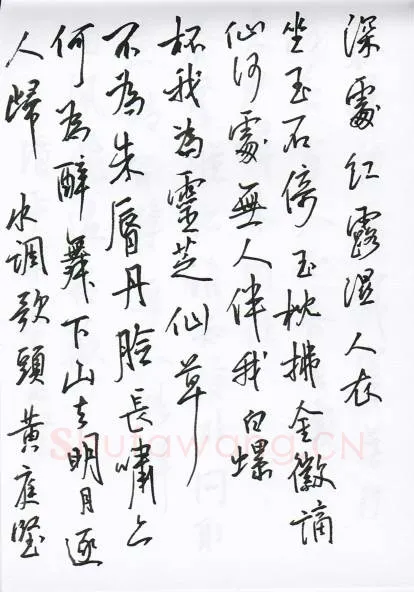 深處紅露濕人衣
坐玉石倚玉枕拂金徽謫
仙何處無人伴我白螺
杯我為靈芝仙草
不為朱脣丹臉長嘯亦
何為醉舞下山去明月逐
人歸 水調歌頭 黃庭堅
Shufawang.CN